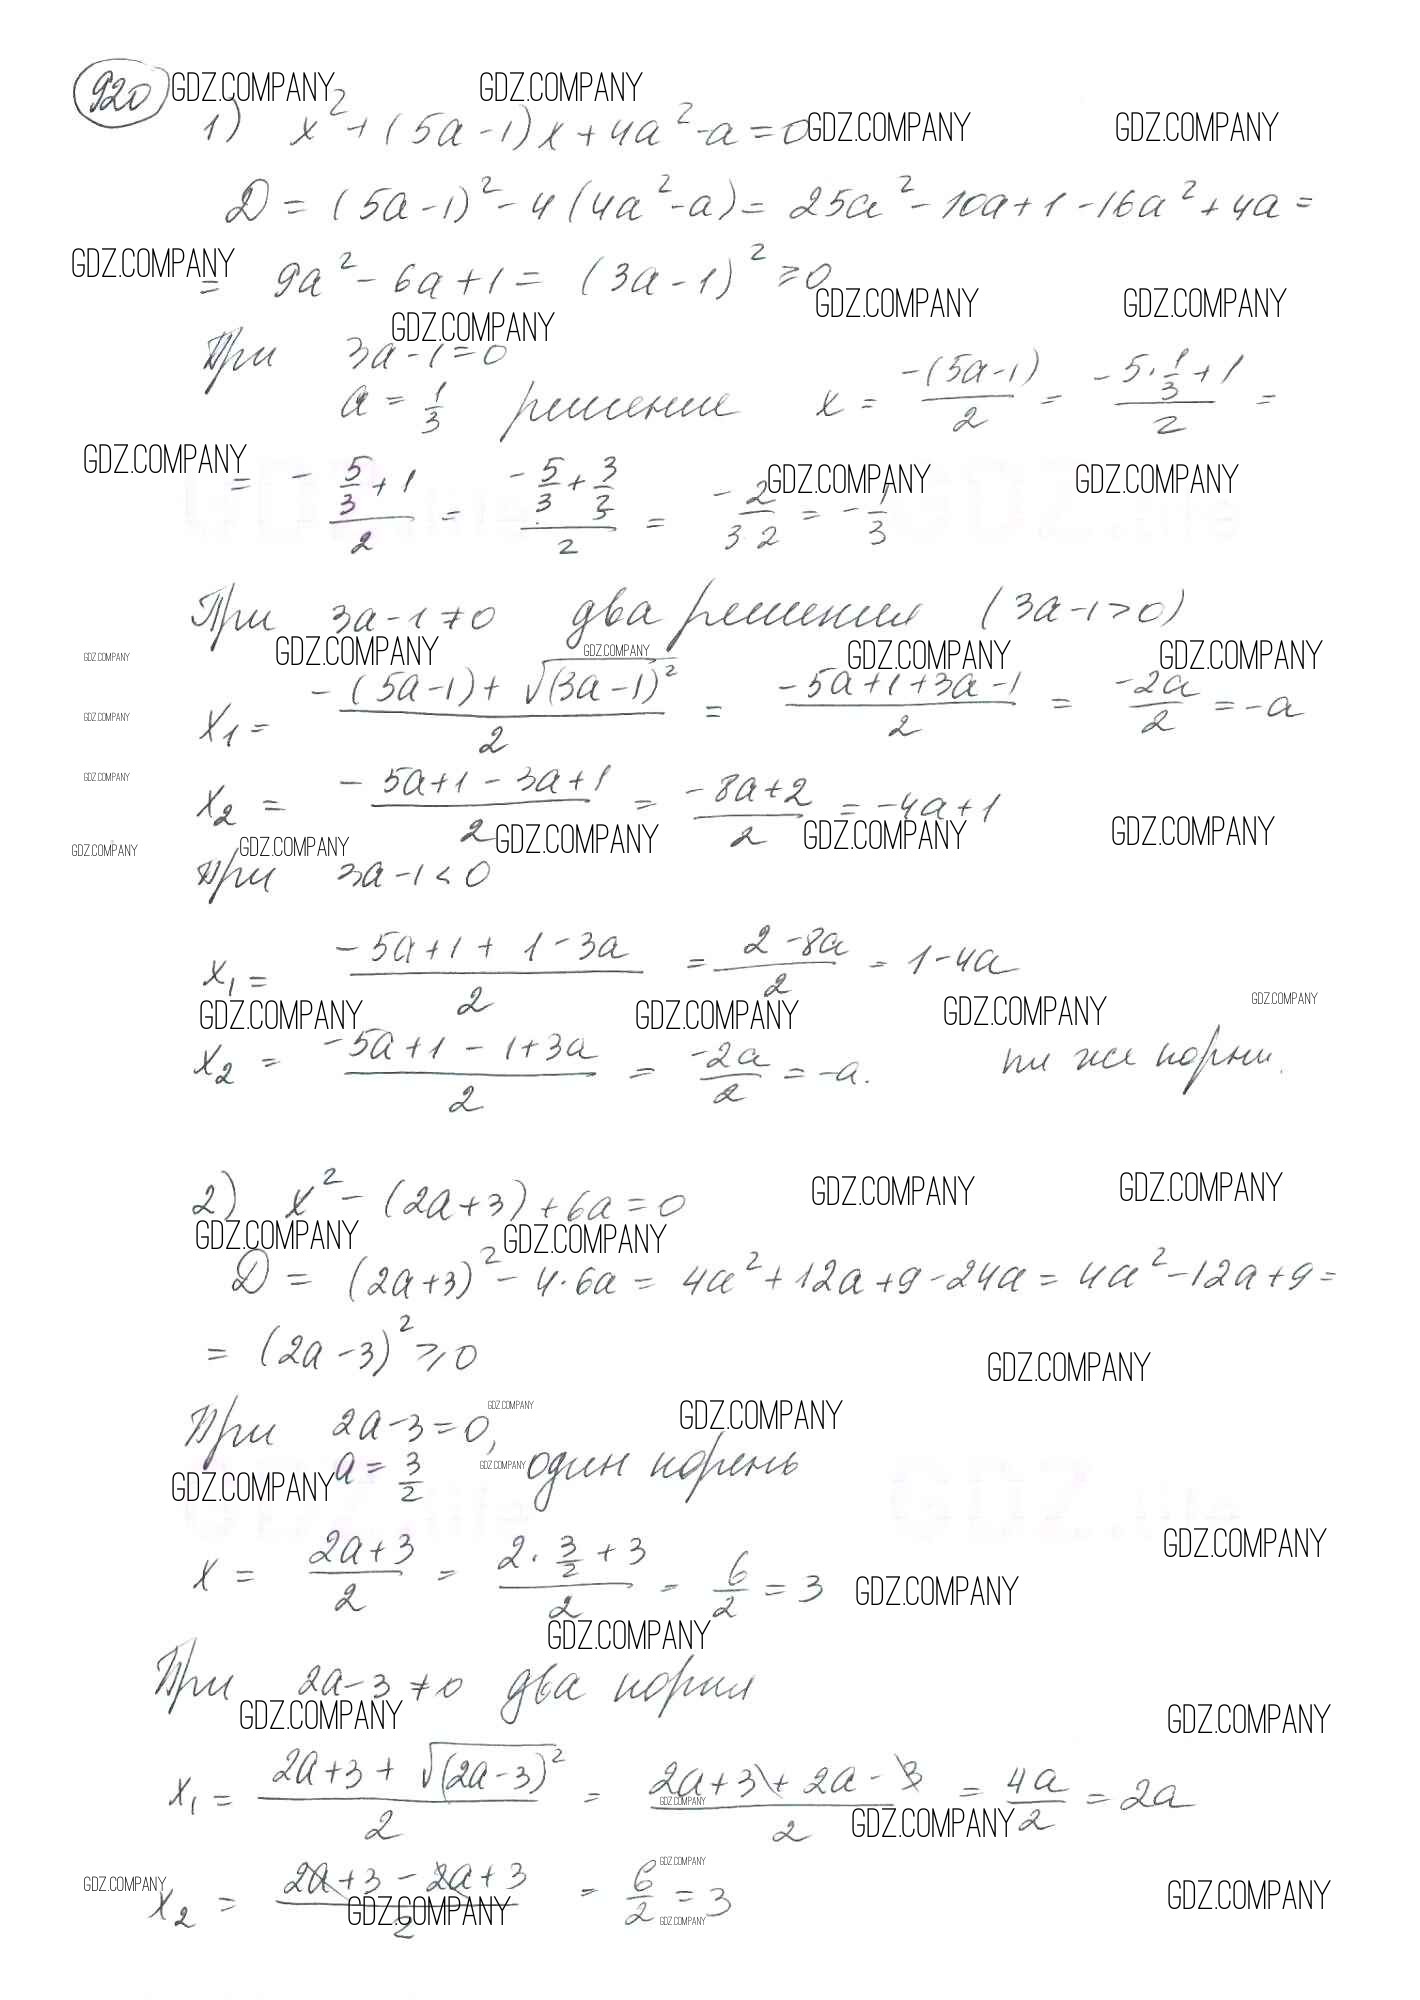 920 GDZ.COMPANY GDZ.COMPANY
1) x² + (5a - 1)x + 4a² - a = 0 GDZ.COMPANY GDZ.COMPANY
D = (5a - 1)² - 4(4a² - a) = 25a² - 10a + 1 - 16a² + 4a =
GDZ.COMPANY
= 9a² - 6a + 1 = (3a - 1)² ≥ 0
GDZ.COMPANY GDZ.COMPANY
GDZ.COMPANY
При 3a - 1 = 0
a = 1/3 решение x = -(5a - 1)/2 = (-5·1/3 + 1)/2 =
GDZ.COMPANY GDZ.COMPANY GDZ.COMPANY
= (-5/3 + 1)/2 = (-5/3 + 3/3)/2 = -2/(3·2) = -1/3
При 3a - 1 ≠ 0 два решения (3a - 1 > 0)
GDZ.COMPANY GDZ.COMPANY GDZ.COMPANY GDZ.COMPANY GDZ.COMPANY
x₁ = (-(5a - 1) + √(3a - 1)²)/2 = (-5a + 1 + 3a - 1)/2 = -2a/2 = -a
GDZ.COMPANY
GDZ.COMPANY
x₂ = (-5a + 1 - 3a + 1)/2 = (-8a + 2)/2 = -4a + 1
GDZ.COMPANY GDZ.COMPANY GDZ.COMPANY GDZ.COMPANY GDZ.COMPANY
При 3a - 1 < 0
x₁ = (-5a + 1 + 1 - 3a)/2 = (2 - 8a)/2 = 1 - 4a
GDZ.COMPANY GDZ.COMPANY GDZ.COMPANY GDZ.COMPANY
x₂ = (-5a + 1 - 1 + 3a)/2 = -2a/2 = -a. те же корни.
2) x² - (2a + 3) + 6a = 0 GDZ.COMPANY GDZ.COMPANY
GDZ.COMPANY GDZ.COMPANY
D = (2a + 3)² - 4·6a = 4a² + 12a + 9 - 24a = 4a² - 12a + 9 =
= (2a - 3)² ≥ 0
GDZ.COMPANY
При 2a - 3 = 0, GDZ.COMPANY GDZ.COMPANY
GDZ.COMPANY a = 3/2 GDZ.COMPANY один корень
x = (2a + 3)/2 = (2·3/2 + 3)/2 = 6/2 = 3 GDZ.COMPANY GDZ.COMPANY
GDZ.COMPANY
При 2a - 3 ≠ 0 два корня
GDZ.COMPANY GDZ.COMPANY
x₁ = (2a + 3 + √(2a - 3)²)/2 = (2a + 3 + 2a - 3)/2 = 4a/2 = 2a
GDZ.COMPANY GDZ.COMPANY
GDZ.COMPANY
x₂ = (2a + 3 - 2a + 3)/2 = 6/2 = 3
GDZ.COMPANY GDZ.COMPANY GDZ.COMPANY GDZ.COMPANY